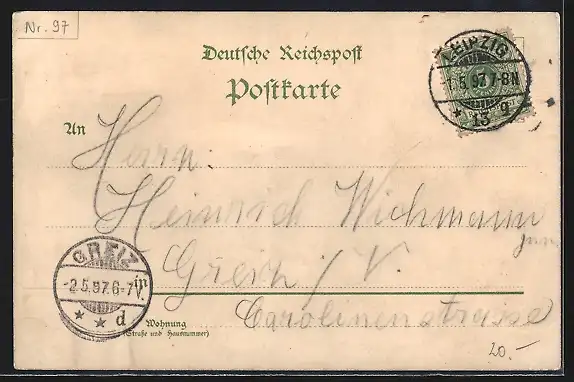 Nr. 97
Deutsche Reichspost
Postkarte
LEIPZIG
-1.5.97 7-8N
* 13 g
An
Herrn
Heinrich Wichmann
jun.
Greiz / V.
in
Carolinenstrasse
GREIZ
-2.5.97. 6-7V.
* * d
Wohnung
(Straße und Hausnummer)
20.-